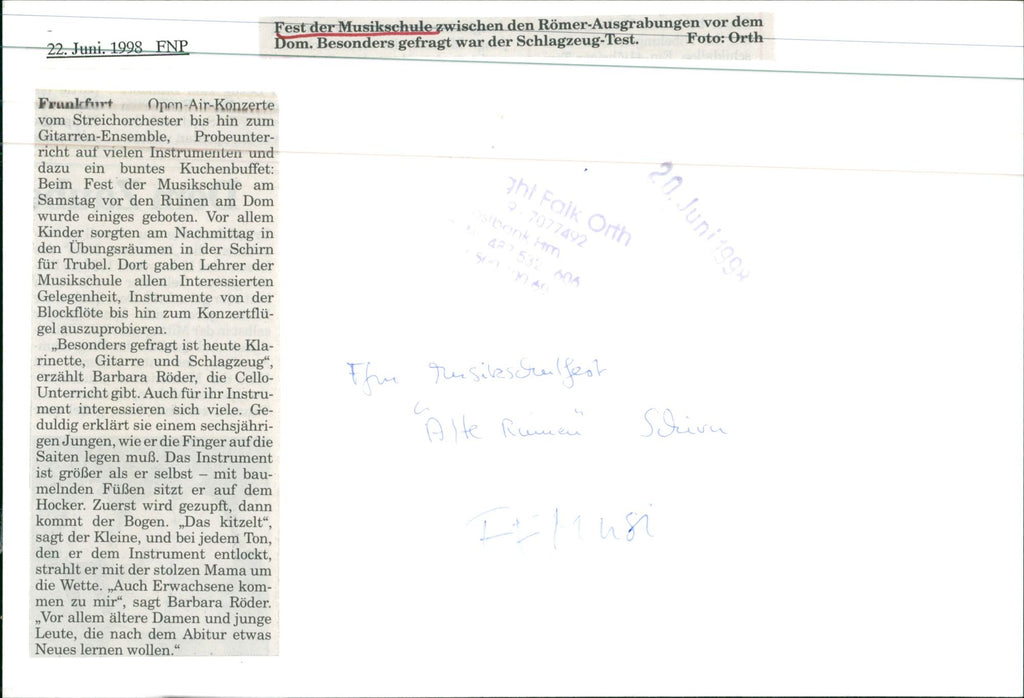 22. Juni. 1998 FNP
Fest der Musikschule zwischen den Römer-Ausgrabungen vor dem
Dom. Besonders gefragt war der Schlagzeug-Test. Foto: Orth
Frankfurt Open-Air-Konzerte
vom Streichorchester bis hin zum
Gitarren-Ensemble, Probeunter-
richt auf vielen Instrumenten und
dazu ein buntes Kuchenbuffet:
Beim Fest der Musikschule am
Samstag vor den Ruinen am Dom
wurde einiges geboten. Vor allem
Kinder sorgten am Nachmittag in
den Übungsräumen in der Schirn
für Trubel. Dort gaben Lehrer der
Musikschule allen Interessierten
Gelegenheit, Instrumente von der
Blockflöte bis hin zum Konzertflü-
gel auszuprobieren.
„Besonders gefragt ist heute Kla-
rinette, Gitarre und Schlagzeug“,
erzählt Barbara Röder, die Cello-
Unterricht gibt. Auch für ihr Instru-
ment interessieren sich viele. Ge-
duldig erklärt sie einem sechsjähri-
gen Jungen, wie er die Finger auf die
Saiten legen muß. Das Instrument
ist größer als er selbst – mit bau-
melnden Füßen sitzt er auf dem
Hocker. Zuerst wird gezupft, dann
kommt der Bogen. „Das kitzelt“,
sagt der Kleine, und bei jedem Ton,
den er dem Instrument entlockt,
strahlt er mit der stolzen Mama um
die Wette. „Auch Erwachsene kom-
men zu mir“, sagt Barbara Röder.
„Vor allem ältere Damen und junge
Leute, die nach dem Abitur etwas
Neues lernen wollen.“
ght Falk Orth
7077492
20. Juni 1998
Ffm Musikschulfest
"Alte Ruinen" Schirn